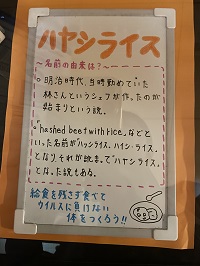 ハヤシライス
～名前の由来は？～
○明治時代、当時勤めていた
林さんというシェフが作ったのが
始まりという説。
○"hashed beef with rice"などと
いった名前が"ハッシライス、ハイシ・ライス"
となりそれが訛って"ハヤシライス"
となった説もある。
給食を残さず食べて
ウイルスに負けない
体をつくろう!!